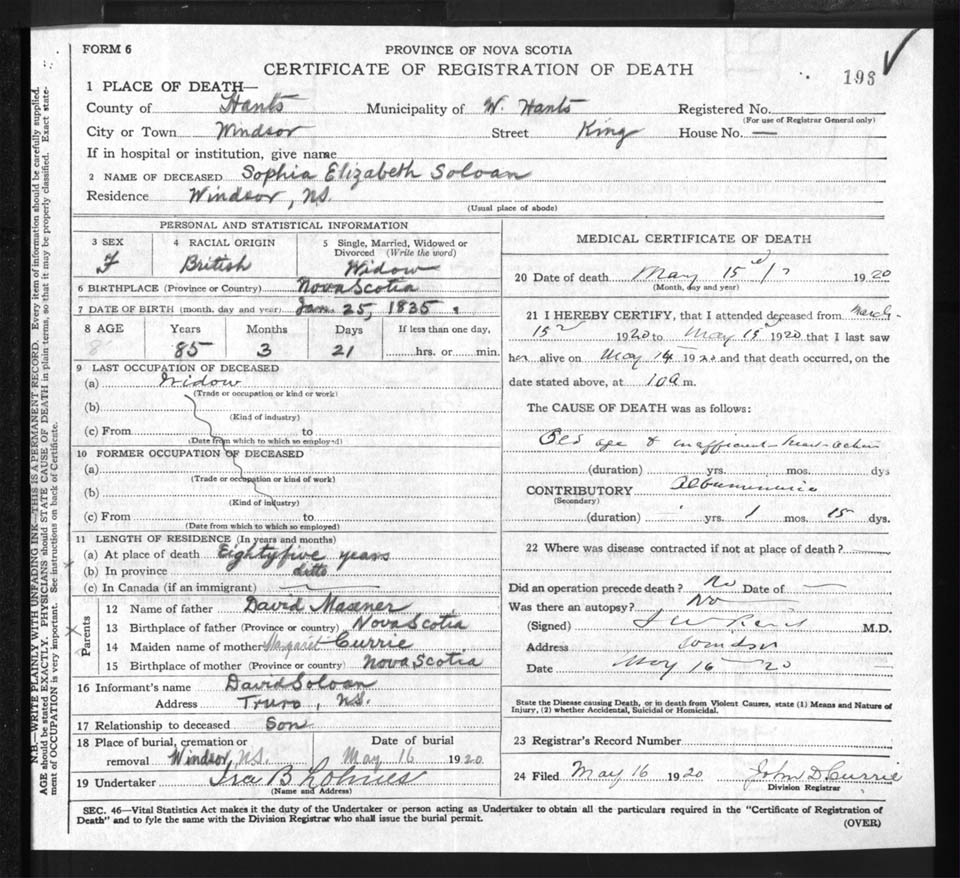 FORM 6
PROVINCE OF NOVA SCOTIA
CERTIFICATE OF REGISTRATION OF DEATH
193
1 PLACE OF DEATH—
County of Hants Municipality of W. Hants Registered No.
(For use of Registrar General only)
City or Town Windsor Street King House No. —
If in hospital or institution, give name
2 NAME OF DECEASED Sophia Elizabeth Soloan
Residence Windsor, N.S.
(Usual place of abode)
PERSONAL AND STATISTICAL INFORMATION
3 SEX F
4 RACIAL ORIGIN British
5 Single, Married, Widowed or Divorced (Write the word) Widow
6 BIRTHPLACE (Province or Country) Nova Scotia
7 DATE OF BIRTH (month, day and year) Jan. 25, 1835
8 AGE Years Months Days If less than one day,
85 3 21 hrs. or min.
9 LAST OCCUPATION OF DECEASED
(a) Widow
(Trade or occupation or kind or work)
(b)
(Kind of industry)
(c) From to
(Date from which to which so employed)
10 FORMER OCCUPATION OF DECEASED
(a)
(Trade or occupation or kind of work)
(b)
(Kind of industry)
(c) From to
(Date from which to which so employed)
11 LENGTH OF RESIDENCE (In years and months)
(a) At place of death Eighty five years
(b) In province ditto
(c) In Canada (if an immigrant)
Parents
12 Name of father David Mosener
13 Birthplace of father (Province or country) Nova Scotia
14 Maiden name of mother Margaret Currie
15 Birthplace of mother (Province or country) Nova Scotia
16 Informant's name David Soloan
Address Truro, N.S.
17 Relationship to deceased Son
18 Place of burial, cremation or removal Windsor, N.S. Date of burial May 16 1920
19 Undertaker Ira B Lohnes
(Name and Address)
MEDICAL CERTIFICATE OF DEATH
20 Date of death May 15 1920
(Month, day and year)
21 I HEREBY CERTIFY, that I attended deceased from March
15 1920 to May 15 1920 that I last saw
her alive on May 14 1920 and that death occurred, on the
date stated above, at 10 a m.
The CAUSE OF DEATH was as follows:
Old age & inefficient heart action
(duration) yrs. mos. dys
CONTRIBUTORY Albuminuria
(Secondary)
(duration) yrs. 1 mos. 15 dys.
22 Where was disease contracted if not at place of death?
Did an operation precede death? No Date of —
Was there an autopsy? No
(Signed) M.D.
Address Windsor
Date May 16 — 20
State the Disease causing Death, or in death from Violent Causes, state (1) Means and Nature of
Injury, (2) whether Accidental, Suicidal or Homicidal.
23 Registrar's Record Number
24 Filed May 16 1920 John D Currie
Division Registrar
SEC. 46—Vital Statistics Act makes it the duty of the Undertaker or person acting as Undertaker to obtain all the particulars required in the "Certificate of Registration of
Death" and to fyle the same with the Division Registrar who shall issue the burial permit.
(OVER)
N.B.—WRITE PLAINLY WITH UNFADING INK—THIS IS A PERMANENT RECORD. Every item of information should be carefully supplied.
AGE should be stated EXACTLY. PHYSICIANS should STATE CAUSE OF DEATH in plain terms, so that it may be properly classified. Exact state-
ment of OCCUPATION is very important. See instructions on back of Certificate.